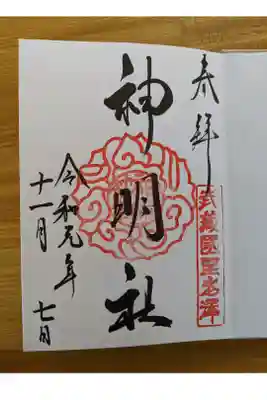 奉拝
武蔵國野老澤
神明社
令和元年
十一月 七日